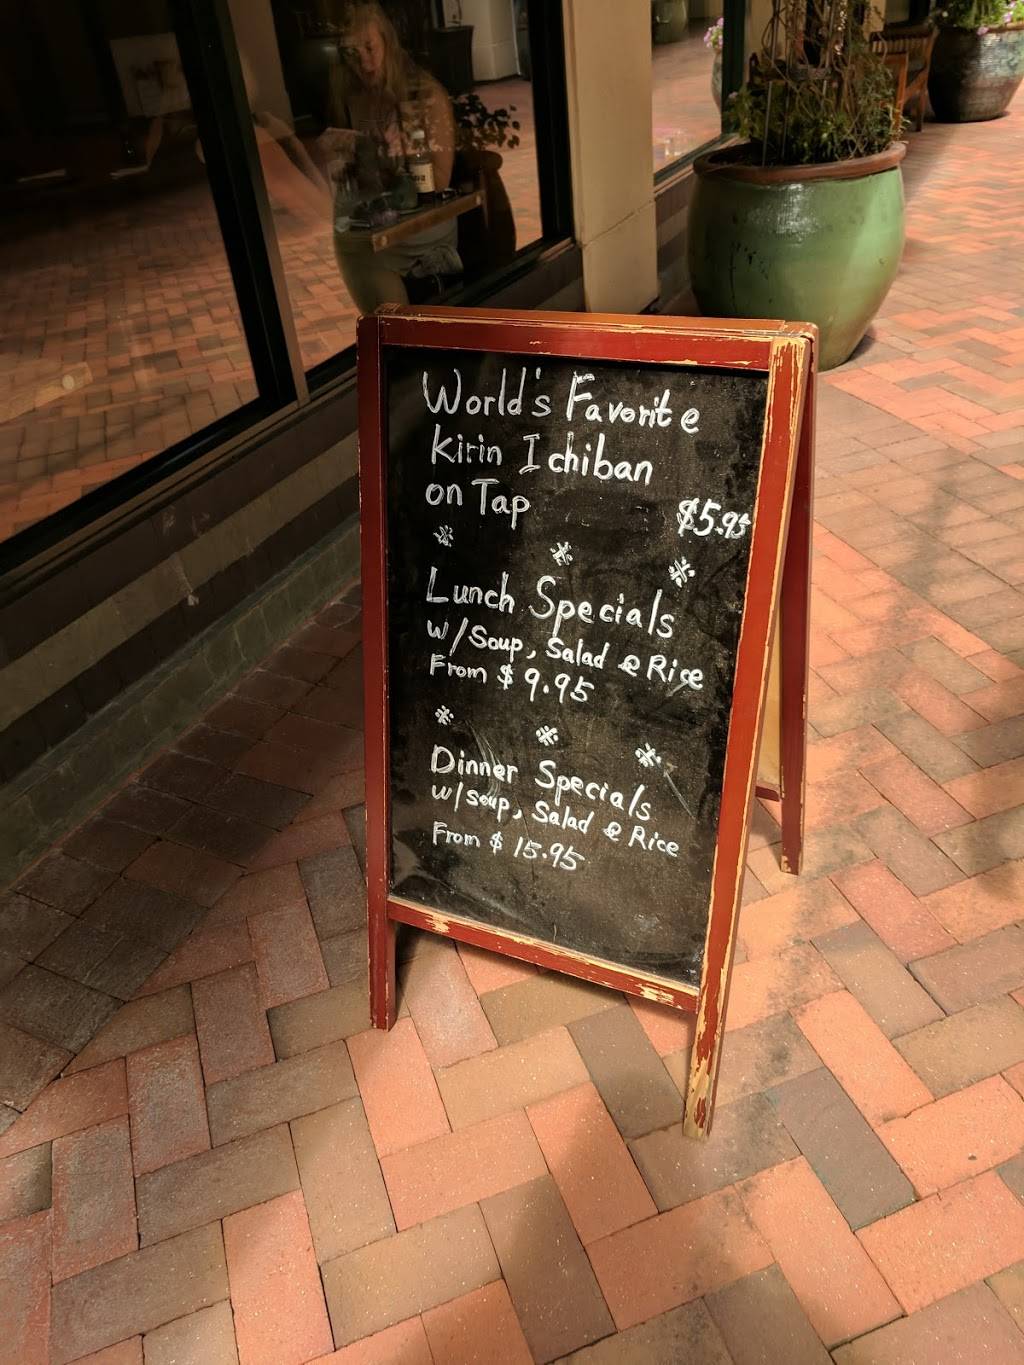 World's Favorite
Kirin Ichiban
on Tap $5.95
※ ※ ※
Lunch Specials
w/Soup, Salad & Rice
From $9.95
※ ※ ※
Dinner Specials
w/Soup, Salad & Rice
From $15.95